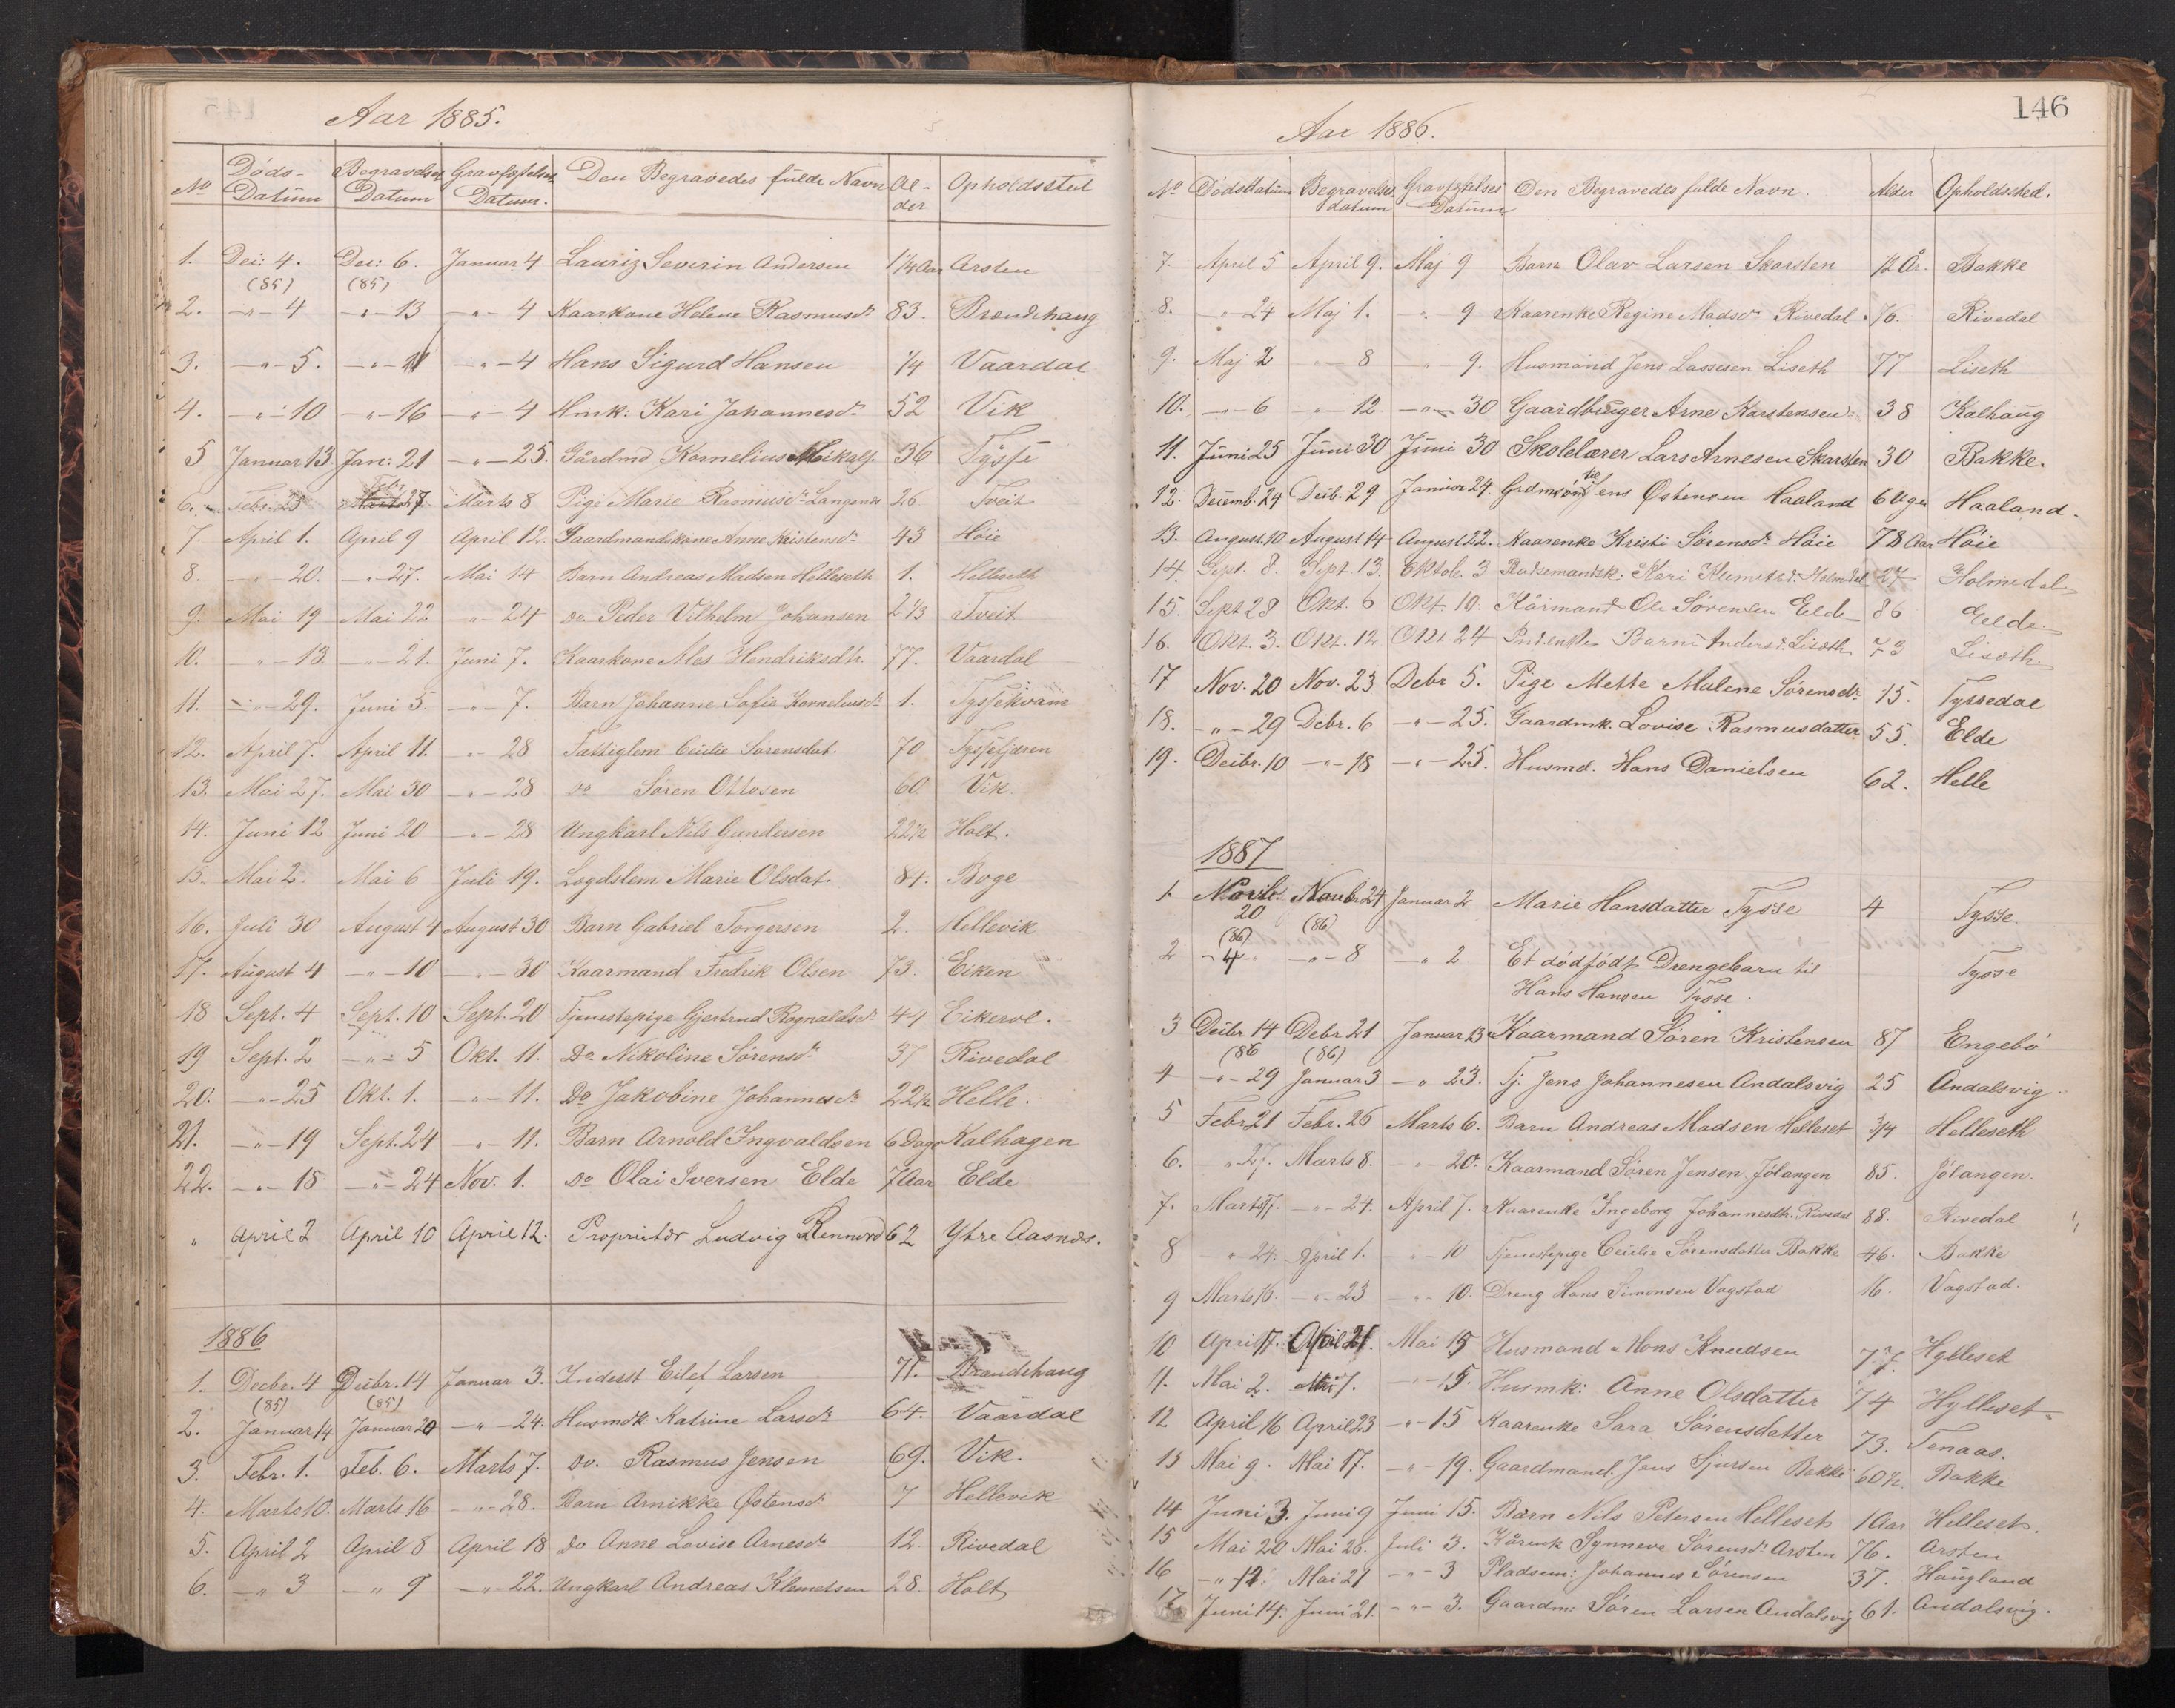 Aar 1885.
No Döds-Datum Begravelses Datum Gravfæstelses Datum. Den Begravedes fulde Navn Al-der Opholdssted
1. Dec: 4. (85) Dec: 6. (85) Januar 4 Lauriz Severin Andersen 1 1/4 Aar Arsten
2. -"- 4 -"- 13 -"- 4 Kaarkone Helene Rasmusdr 83. Brandshaug
3. -"- 5. -"- 11 -"- 4 Hans Sigurd Hansen 1/4 Vaardal
4. -"- 10 -"- 16 -"- 4 Hmk: Kari Johannesdr 52 Vik
5 Januar 13. Jan: 21 -"- 25. Gårdmd Kornelius Mikals. 36 Tysse
6. Febr. 23 Febr. 27 Marts 8 Pige Marie Rasmusdr Langenes 26 Tveit
7. April 1. April 9 April 12. Gaardmandskone Anne Kristensdr 43 Höie
8. -"- 20. -"- 27. Mai 14 Barn Andreas Madsen Helleseth 1. Helleseth
9. Mai 19 Mai 22 -"- 24 do. Peder Vilhelm Johansen 2 1/3 Tveit
10. -"- 13. -"- 21. Juni 7. Kaarkone Ales Hendriksdtr. 77. Vaardal
11. -"- 29. Juni 5. -"- 7. Barn Johanne Sofie Korneliusdr 1. Tyssekvam
12. April 7. April 11. -"- 28 Fattiglem Cecilie Sørensdat. 70 Tyssefjæren
13. Mai 27. Mai 30 -"- 28 do Sören Ottosen 60 Vik
14. Juni 12 Juni 20 -"- 28 Ungkarl Nils Gundersen 22 1/2 Holt.
15. Mai 2. Mai 6 Juli 19. Legdslem Marie Olsdat. 84. Boge
16. Juli 30 August 4 August 30 Barn Gabriel Torgersen 2. Hellevik
17. August 4 -"- 10 -"- 30 Kaarmand Fredrik Olsen 73. Eiken
18 Sept. 4 Sept. 10 Sept. 20 Tjenestepige Gjertrud Rognaldsdr 44 Eikevol.
19 Sept. 2 -"- 5 Okt. 11. Do Nikoline Sörensdr 37 Rivedal
20. -"- 25 Okt. 1. -"- 11. Do Jakobine Johannesdr 22 1/2 Helle.
21. -"- 19 Sept. 24 -"- 11. Barn Arnold Ingvaldsen 6 Dage Kalhagen
22. -"- 18 -"- 24 Nov. 1. Do Olai Iversen Elde 7 Aar Elde
" April 2 April 10 April 12. Proprietær Ludvig Rennord 62 Ytre Aasnæs.
1886
1. Decbr. 4 (85) Decbr. 14 (85) Januar 3. Inderst Eilef Larsen 71. Brandshaug
2. Januar 14 Januar 20 -"- 24. Husmdk Katrine Larsdr 64. Vaardal
3. Febr. 1. Feb. 6. Marts 7. do. Rasmus Jensen 69. Vik.
4. Marts 10. Marts 16 -"- 28. Barn Arnikke Østensdr 7 Hellevik
5. April 2 April 8 April 18 do Anne Lovise Arnesdr 12. Rivedal
6. -"- 3 -"- 9 -"- 22. Ungkarl Andreas Klemetsen 28. Holt
146
Aar 1886.
No Dödsdatum Begravelses datum Gravfæstelses Datum Den Begravedes fulde Navn. Alder Opholdssted.
7. April 5 April 9. Maj 9 Barn Olav Larsen Skarsten 1/2 År. Bakke
8. -"- 24 Maj 1. -"- 9 Kaarenke Regine Madsdr Rivedal 76. Rivedal
9. Maj 2 -"- 8 -"- 9. Husmand Jens Lassesen Liseth 77 Liseth
10. -"- 6 -"- 12 -"- 30 Gaardbruger Arne Karstensen 38 Kalhaug
11. Juni 25 Juni 30 Juni 30 Skolelærer Lars Arnesen Skarsten 30 Bakke.
12. Decemb. 24 Decb. 29 Januar 24. Grdmsön til Jens Østensen Haaland 6 Uger Haaland.
13. August 10 August 14 August 22. Kaarenke Kristi Sörensdr Höie 78 Aar Höie
14. Sept. 8. Sept. 13. Oktob. 3 Pladsemandsk: Kari Klemetsd. Holmedal 27 Holmedal
15. Sept 28 Okt. 6 Okt. 10. Kårmand Ole Sörensen Elde 86 Elde.
16. Okt. 3. Okt. 12 Okt. 24 Barni Andersd. Liseth 73 Liseth.
17 Nov. 20 Nov. 23 Debr 5. Pige Mette Malene Sörensdr 15. Tyssedal
18. -"- 29 Debr. 6 -"- 25. Gaardmk. Lovise Rasmusdatter 55. Elde
19. Decbr. 10 -"- 18 -"- 25. Husmd. Hans Danielsen 62. Helle
1887
1 Novbr. 20 (86) Novbr 24 (86) Januar 2 Marie Hansdatter Tysse 4 Tysse.
2 -"- 4 -"- 8 -"- 2 Et dödfödt Drengebarn til Tysse
Hans Hansen Tysse.
3 Decbr 14 (86 Debr 21 (86) Januar 23 Kaarmand Sören Kristensen 87 Engebö
4 -"- 29 Januar 3 -"- 23. Tj. Jens Johannesen Andalsvig 25 Andalsvig.
5 Febr 21 Febr. 26 Marts 6. Barn Andreas Madsen Helleset 3/4 Helleseth
6. -"- 27. Marts 8. -"- 20. Kaarmand Sören Jensen Jölangen 85. Jölangen.
7. Marts 17. -"- 24. April 7. Kaarenke Ingeborg Johannesdtr. Rivedal 88. Rivedal
8 -"- 24. April 1. -"- 10 Tjenestepige Cecilie Sörensdatter Bakke 46. Bakke
9 Marts 16. -"- 23 -"- 10. Dreng Hans Simonsen Vagstad 16. Vagstad.
10 April 17. April 21. Mai 15 Husmand Mons Knudsen 77. Hylleset
11. Mai 2. Mai 7. -"- 15. Husmk: Anne Olsdatter 74 Hylleset
12 April 16 April 23 -"- 15 Kaarenke Sara Sörensdatter 73. Tenaas.
13 Mai 9. Mai 17. -"- 19. Gaardmand. Jens Sjursen Bakke 60 1/2. Bakke
14 Juni 3. Juni 9 Juni 15. Barn Nils Petersen Helleset 1 Aar Helleset.
15 Mai 20 Mai 28. Juli 3. Kårenk Synneve Sörensdr Arsten 76. Arsten
16 -"- 12. Mai 21 -"- 3 Pladsem: Johannes Sörensen 37. Haugland
17 Juni 14. Juni 21. -"- 3. Gaardm: Sören Larsen Andalsvig 61. Andalsvig.